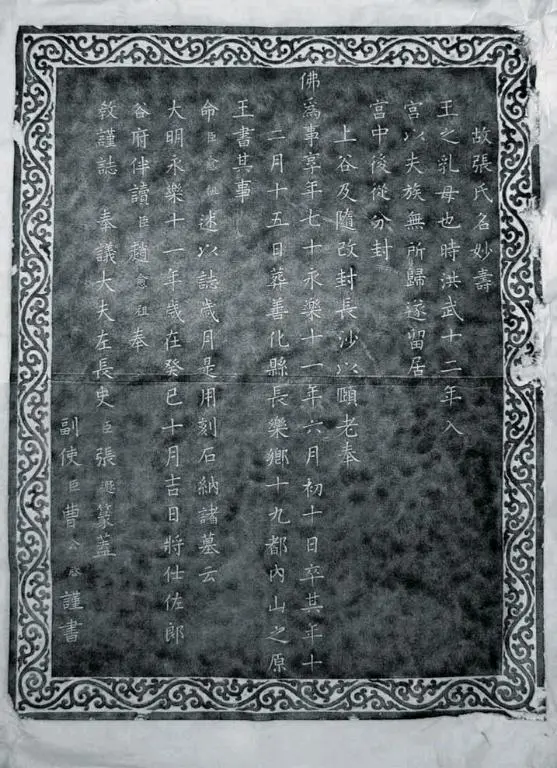 故張氏名妙壽
王之乳母也時洪武十二年入
宮以夫族無所歸遂留居
宮中後從分封
上谷及隨改封長沙以頤老奉
佛為事享年七十永樂十一年六月初十日卒其年十
二月十五日葬善化縣長樂鄉十九都內山之原
王書其事
命臣愈祖述以誌歲月是用刻石納諸墓云
大明永樂十一年歲在癸巳十月吉日將仕佐郎
谷府伴讀臣趙愈祖奉
敎謹誌 奉議大夫左長史臣張 篆蓋
副使臣曹 謹書